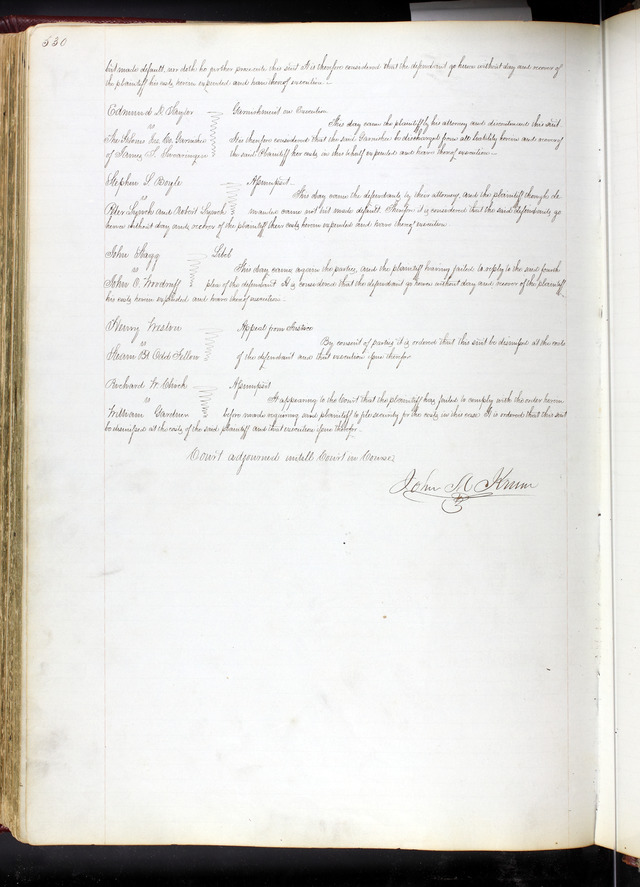 530
but made default, nor doth he further prosecute this suit It is therefore considered that the defendant go hence without day and recover of
the plaintiff his costs herein expended and have thereof execution
Edmund H. Taylor Garnishment on Execution
vs This day came the plaintiff by his attorney and discontinued this suit
It is therefore considered that the said Garnishee be discharged from all liability herein and recover
of James S. Swearingen the said Plaintiff her costs in this behalf expended and have thereof execution
Stephen S. Boyle Assumpsit
vs This day came the defendants by their attorney, and the plaintiff though de
Peter Lynch and Robert Lynch manded came not but made default. Therefore it is considered that the said defendants go
hence without day and recover of the plaintiff their costs herein expended and have thereof execution
John Shagg Libel
vs This day came again the parties, and the plaintiff having failed to reply to the said fourth
John O. Woodruff plea of the defendant It is considered that the defendant go hence without day and recover of the plaintiff
his costs herein expended and have thereof execution
Henry Weston Appeal from Justice
vs By consent of parties it is ordered that this suit be dismissed at the costs
Steam Bt Odd Fellow of the defendant and that execution issue therefor
Richard W. Ulrick Assumpsit
vs It appearing to the Court that the plaintiff has failed to comply with the order herein
William Gardner before made requiring said plaintiff to file security for the costs in this case It is ordered that this suit
be dismissed at the costs of the said plaintiff and that execution issue therefor
Court adjourned untill Court in Course
John M Krum